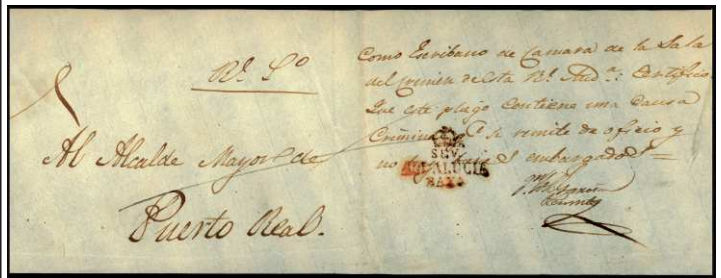 Rl. So
Al Alcalde Mayor de
Puerto Real.
Como Escribano de Camara de la Sala
del crimen de esta Rl. Auda. Certifico:
Que este pliego Contiene una Causa
Criminal qe. se remite de oficio y
no embargado
SEVA
ANDALUCIA
BAXA